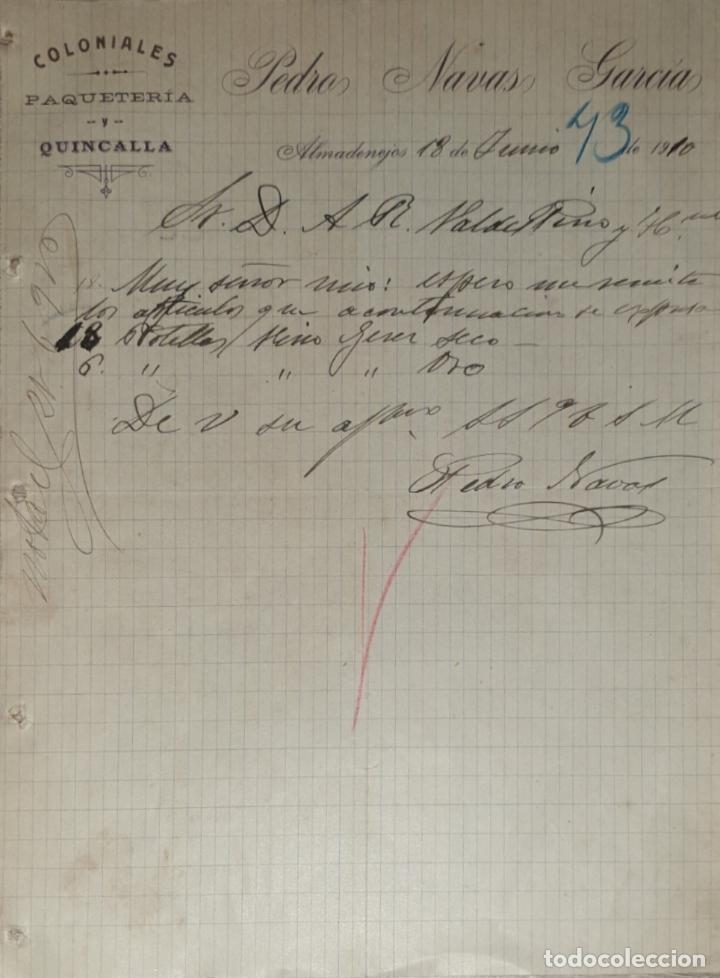 COLONIALES
PAQUETERÍA
-- y --
QUINCALLA
Pedro Navas García
Almadenejos 18 de Junio de 1910
73
Sr. D. A. R. Valdespino y Hno
Muy señor mio: espero me remita
los articulos que a continuacion se expresa
18 Botellas Vino Gerez seco —
6. " " " Oro
De V su affmo S S Q B S M
Pedro Navas
todocoleccion
todocoleccion.net